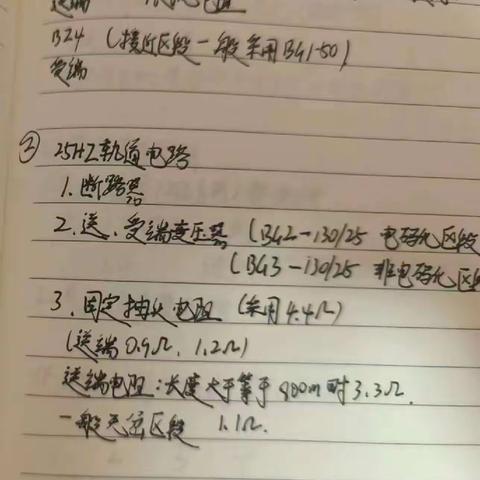 送端
BZ4 (接近区段一般采用BG1-50)
受端
② 25HZ轨道电路
1. 断路器
2. 送、受端变压器 (BG2-130/25 电码化区段
(BG3-130/25 非电码化区段
3. 固定抽头电阻 (采用4.4Ω)
(送端0.9Ω, 1.2Ω)
送端电阻:长度大于等于900m时3.3Ω.
一般无岔区段 1.1Ω.